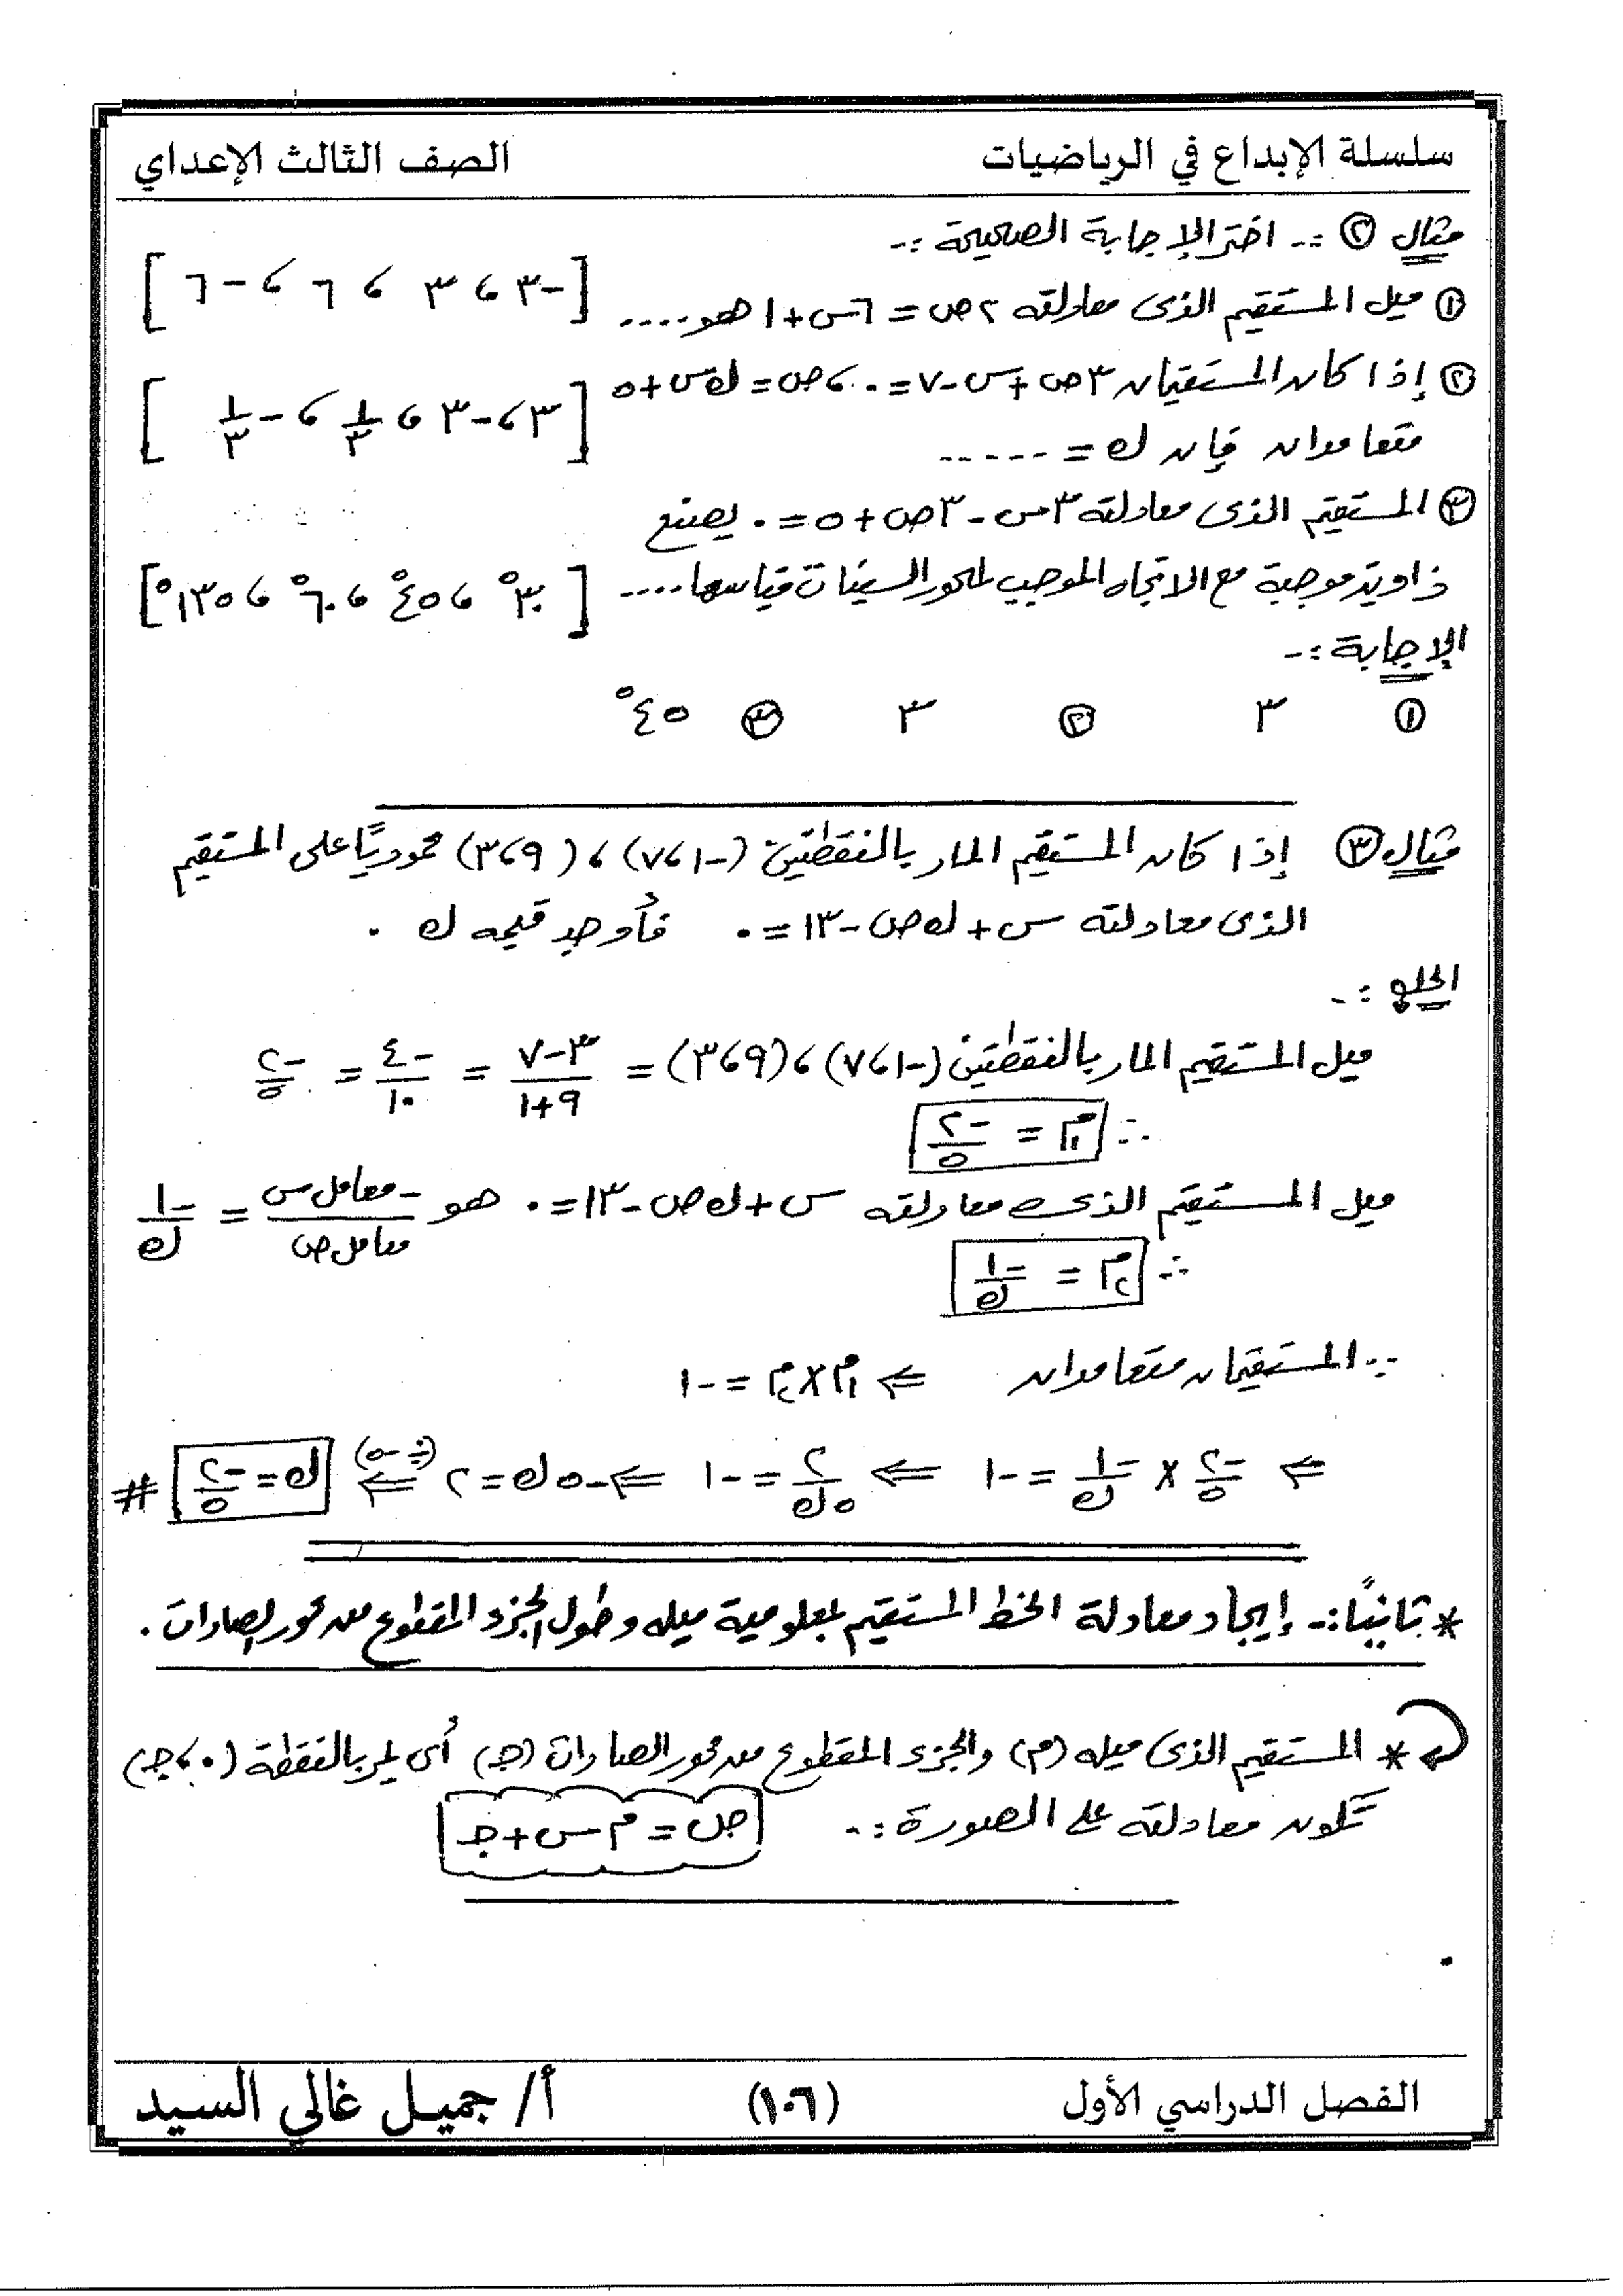 سلسلة الإبداع في الرياضيات الصف الثالث الإعداي
مثال ٢ :- اختر الإجابة الصحيحة :-
١ ميل المستقيم الذى معادلته ٢ص = ٦س + ١ هو .... [-٣ ، ٣ ، ٦ ، -٦]
٢ إذا كان المستقيمان ٣ص + س - ٧ = ٠ ، ص = ك س + ٥
متعامدان فإن ك = ----- [٣ ، -٣ ، ١/٣ ، -١/٣]
٣ المستقيم الذى معادلته ٣س - ٣ص + ٥ = ٠ يصنع
زاوية موجبة مع الاتجاه الموجب لمحور السينات قياسها .... [٣٠° ، ٤٥° ، ٦٠° ، ١٣٥°]
الإجابة :-
١ ٣ ٢ ٣ ٣ ٤٥°
مثال ٣ إذا كان المستقيم المار بالنقطتين (-١ ، ٧) ، (٩ ، ٣) عموديًا على المستقيم
الذى معادلته س + ك ص - ١٣ = ٠ فأوجد قيمه ك .
الحل :-
ميل المستقيم المار بالنقطتين (-١ ، ٧) ، (٩ ، ٣) = (٣ - ٧)/(٩ + ١) = -٤/١٠ = -٢/٥
∴ م١ = -٢/٥
ميل المستقيم الذى معادلته س + ك ص - ١٣ = ٠ هو -معامل س/معامل ص = -١/ك
∴ م٢ = -١/ك
∵ المستقيمان متعامدان ⇐ م١ × م٢ = -١
⇐ -٢/٥ × -١/ك = -١ ⇐ ٢/٥ك = -١ ⇐ -٥ك = ٢ ⇐ (÷ -٥) ك = -٢/٥ #
* ثانيًا :- إيجاد معادلة الخط المستقيم بمعلومية ميله وطول الجزء المقطوع من محور الصادات .
* المستقيم الذى ميله (م) والجزء المقطوع من محور الصادات (جـ) أى يمر بالنقطة (٠ ، جـ)
تكون معادلته على الصورة :- ص = م س + جـ
الفصل الدراسي الأول (١٠٦) أ/ جميل غالي السيد